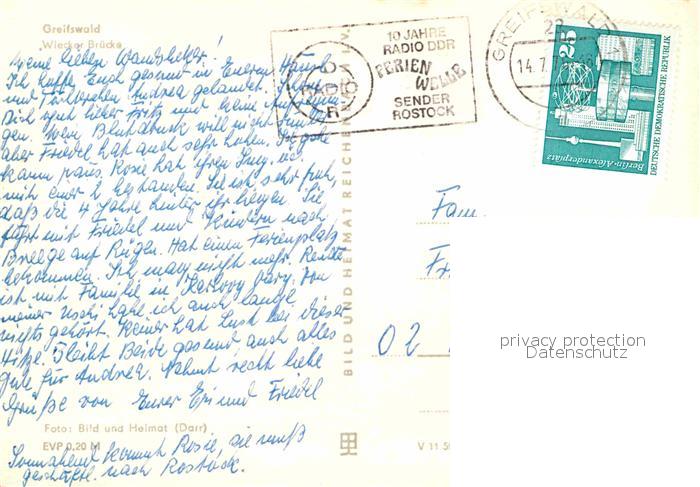 Greifswald
Wiecker Brücke
Meine lieben Wandsbeker!
Ich hoffe Euch gesund in Eurem Häusle
und Andrea gelandet. Ich hoffe
Dich auch lieber Fritz und keine
gen. Mein Blutdruck will nicht
aber Friedel hat auch sehr Ich gehe
kaum raus. Rosie hat ihren Ing. etc.
mit einer 2 bestanden. Sie ist sehr froh,
daß die 4 Jahre hinter ihr liegen. Sie
fährt mit Friedel und Kindern nach
Breege auf Rügen. Hat einen Ferienplatz
bekommen. Ich mag nicht mehr. Renate
ist mit Familie in Karlovy Vary. Von
meiner Uschi habe ich auch lange
nichts gehört. Keiner hat Lust bei dieser
Hitze. Bleibt Beide gesund, auch alles
Gute für Andrea. Nehmt recht liebe
Grüße von Eurer und Friedel
Foto: Bild und Heimat (Darr)
EVP 0,20 M
Sonnabend kommt Rosie, sie muß
geschäftl. nach Rostock.
BILD UND HEIMAT REICHENBACH I. V.
V 11 5
10 JAHRE
RADIO DDR
FERIEN
WELLE
SENDER
ROSTOCK
RADIO
GREIFSWALD
22
14.7.
25
Berlin-Alexanderplatz
DEUTSCHE DEMOKRATISCHE REPUBLIK
Fam.
Fr
02
privacy protection
Datenschutz